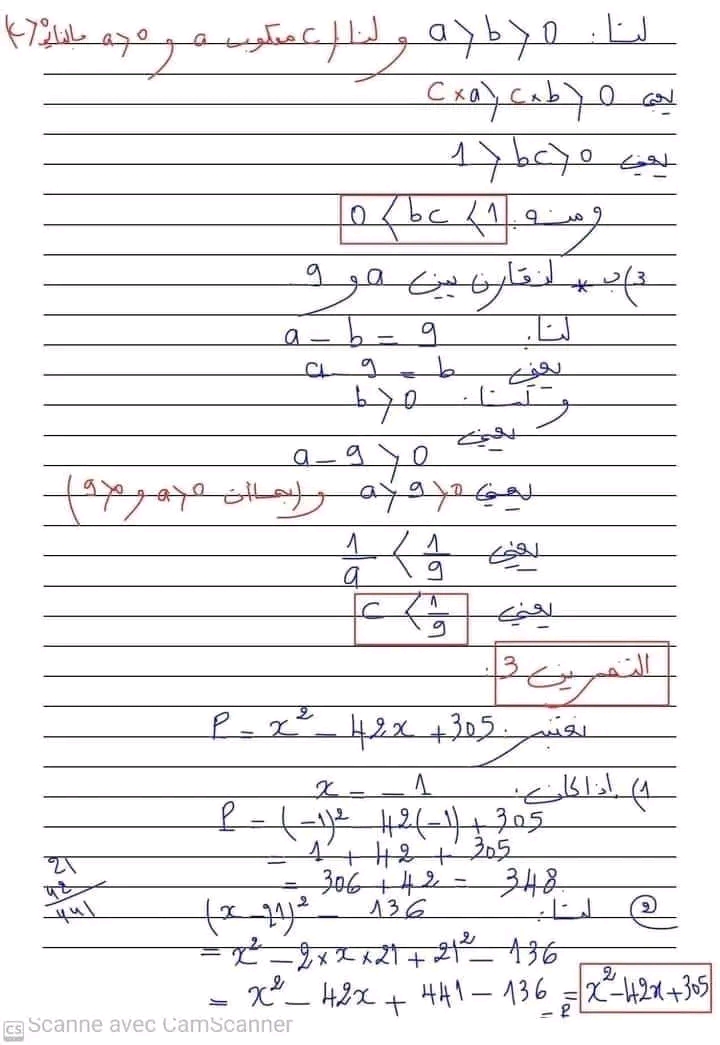 لنا: a > b > 0 و لنا c مقلوب a و a>0 بالتالي c>0
يعني c×a > c×b > 0
يعني 1 > bc > 0
و منه: 0 < bc < 1
3) ب * لنقارن بين a و 9
لنا: a - b = 9
يعني a - 9 = b
و لنا: b > 0
يعني
a - 9 > 0
يعني a > 9 > 0 و بما أن a>0 و 9>0)
يعني 1/a < 1/9
يعني c < 1/9
التمرين 3:
نعتبر: P = x² - 42x + 305
1) إذا كان: x = -1
P = (-1)² - 42(-1) + 305
= 1 + 42 + 305
= 306 + 42 = 348
21
42
441
② لنا: (x - 21)² - 136
= x² - 2 × x × 21 + 21² - 136
= x² - 42x + 441 - 136 = x² - 42x + 305
= P
CS Scanné avec CamScanner